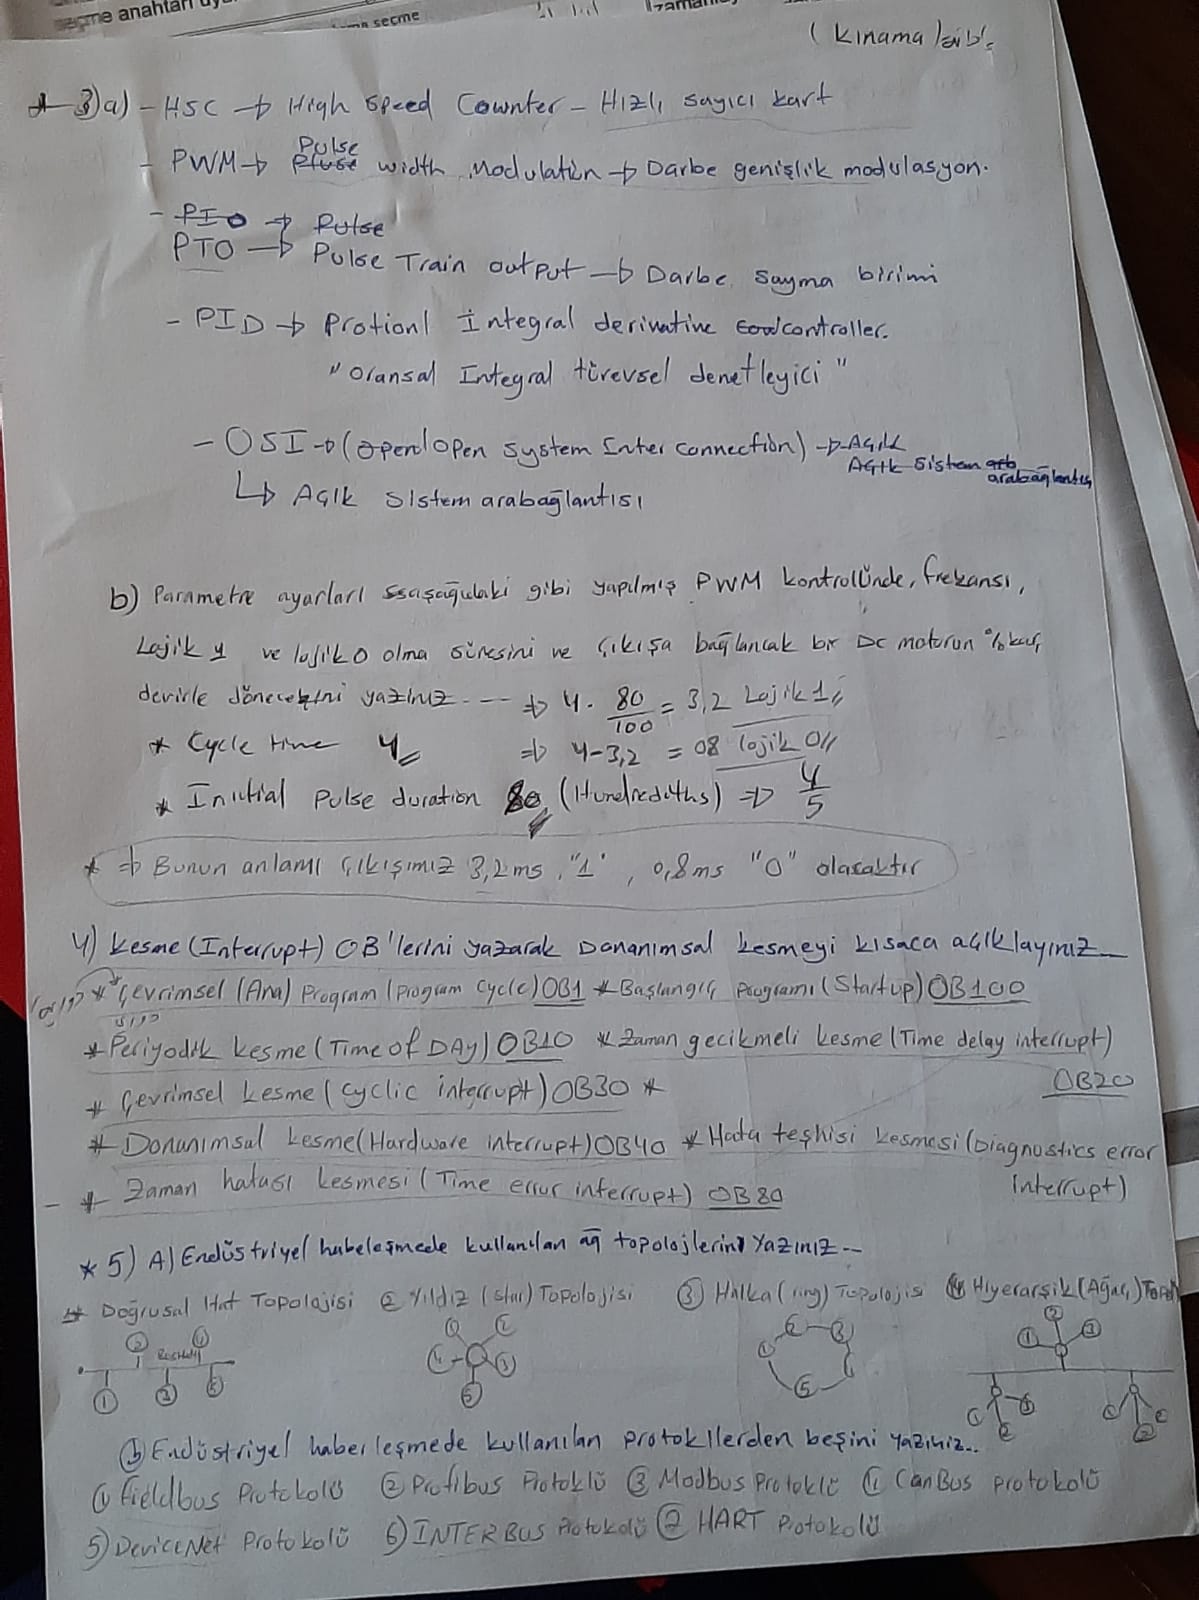 seçme anahtarı
seçme
(kınama
3)a) - HSC → High Speed Counter - Hızlı sayıcı kart
- PWM → Pulse width Modulatin → Darbe genişlik modulasyon.
- PIO → Pulse
PTO → Pulse Train output → Darbe sayma birimi
- PID → Protionl İntegral derivative controller.
"Oransal Integral türevsel denetleyici"
- OSI → (Open System Inter connection) → Açık
Açık Sistem
arabağlantısı
↳ Açık Sistem arabağlantısı
b) Parametre ayarları gibi yapılmış PWM kontrolünde, frekansı,
Lojik 1 ve lojik 0 olma süresini ve çıkışa bağlancak bir DC motorun %kaç
devirle döneceğini yazınız --- ⇒ 4. 80/100 = 3,2 Lojik 1
* Cycle time 4 ⇒ 4-3,2 = 08 lojik 0
* Inıtial Pulse duration 80 (Hundrediths) ⇒ 4/5
* ⇒ Bunun anlamı çıkışımız 3,2ms, "1", 0,8ms "0" olacaktır
4) Kesme (Interrupt) OB'lerini yazarak Donanımsal kesmeyi kısaca açıklayınız
* Çevrimsel (Ana) Program (program cycle) OB1 * Başlangıç programı (Startup) OB100
* Periyodik kesme (Time of DAy) OB10 * Zaman gecikmeli kesme (Time delay interrupt)
OB20
* Çevrimsel kesme (cyclic interrupt) OB30 *
* Donanımsal kesme (Hardware interrupt) OB40 * Hata teşhisi kesmesi (Diagnostics error
interrupt)
- * Zaman hatası kesmesi (Time error interrupt) OB80
* 5) A) Endüstriyel habeleşmede kullanılan ağ topolojlerini yazınız --
* Doğrusal Hat Topolojisi ② Yıldız (star) Topolojisi ③ Halka (ring) Topolojisi ④ Hiyerarşik (Ağaç)
b) Endüstriyel haberleşmede kullanılan protokllerden beşini yazınız..
① fieldbus Protokolü ② Profibus Protoklü ③ Modbus Protoklü ④ CanBus protokolü
5) DeviceNet Protokolü 6) INTERBUS Protokolü ⑦ HART Protokolü